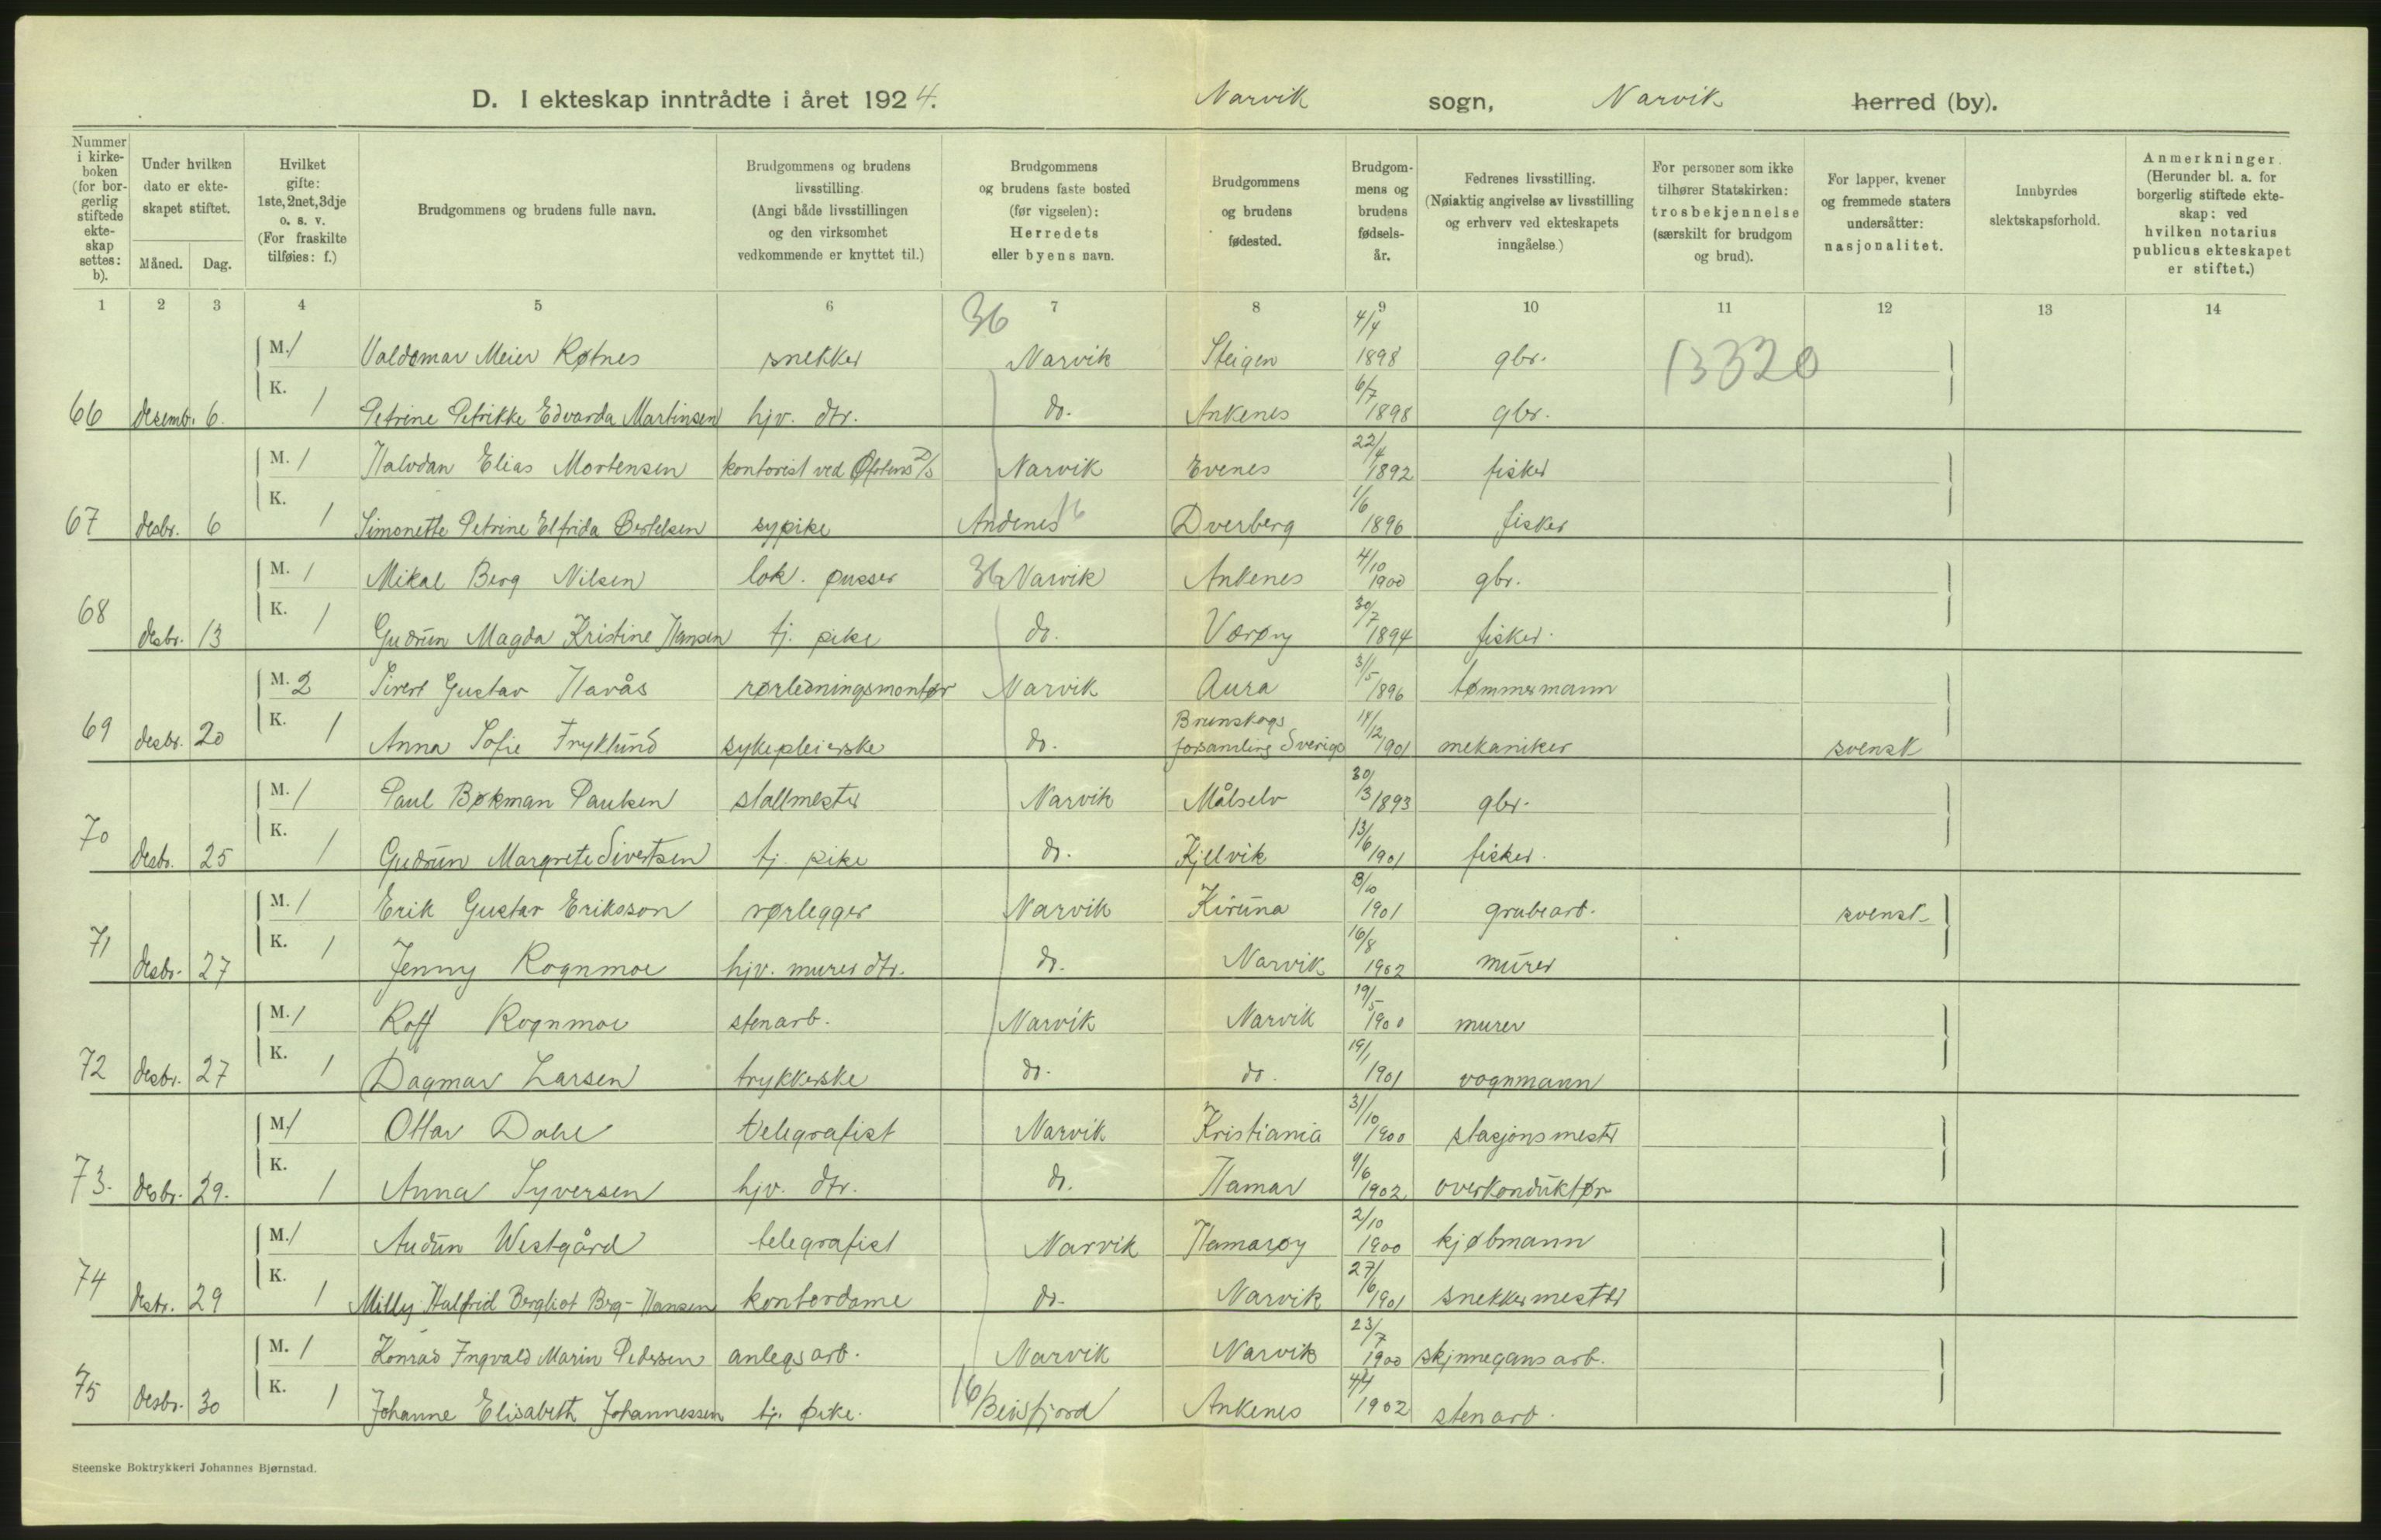 D. I ekteskap inntrådte i året 1924. Narvik sogn, Narvik herred (by).
Nummer i kirkeboken (for borgerlig stiftede ekteskap settes: b).
Under hvilken dato er ekteskapet stiftet. Måned. Dag.
Hvilket gifte: 1ste, 2net, 3dje o. s. v. (For fraskilte tilføies: f.)
Brudgommens og brudens fulle navn.
Brudgommens og brudens livsstilling. (Angi både livsstillingen og den virksomhet vedkommende er knyttet til.)
Brudgommens og brudens faste bosted (før vigselen): Herredets eller byens navn.
Brudgommens og brudens fødested.
Brudgommens og brudens fødselsår.
Fedrenes livsstilling. (Nøiaktig angivelse av livsstilling og erhverv ved ekteskapets inngåelse.)
For personer som ikke tilhører Statskirken: trosbekjennelse (særskilt for brudgom og brud).
For lapper, kvener og fremmede staters undersåtter: nasjonalitet.
Innbyrdes slektskapsforhold.
Anmerkninger. (Herunder bl. a. for borgerlig stiftede ekteskap: ved hvilken notarius publicus ekteskapet er stiftet.)
1 2 3 4 5 6 7 8 9 10 11 12 13 14
36
M. 1 Valdemar Meier Røtnes snekker Narvik Steigen 4/4 1898 gbr. 13320
66 desemb. 6. K. 1 Petrine Petrikke Edvarda Martinsen hjv. dtr. do. Ankenes 6/7 1898 gbr.
M. 1 Halvdan Elias Mortensen kontorist ved Ofotens D/S Narvik Evenes 22/4 1892 fisker
67 desbr. 6 K. 1 Simonette Petrine Elfrida Bertelsen sypike Andenes 16 Dverberg 1/6 1896 fisker
M. 1 Mikal Berg Nilsen lok. pusser 36 Narvik Ankenes 4/10 1900 gbr.
68 desbr. 13 K. 1 Gudrun Magda Kristine Hansen tj. pike do. Værøy 30/7 1894 fisker.
M. 2 Sivert Gustav Havås rørledningsmontør Narvik Aura 31/5 1896 tømmermann
69 desbr. 20 K. 1 Anna Sofie Fryklund sykepleierske do. Brunskogs forsamling Sverige 14/12 1901 mekaniker svensk
M. 1 Paul Bøkman Paulsen stallmester Narvik Målselv 30/3 1893 gbr.
70 desbr. 25 K. 1 Gudrun Margrete Sivertsen tj. pike do. Kjelvik 13/6 1901 fisker.
M. 1 Erik Gustav Eriksson rørlegger Narvik Kiruna 8/10 1901 grubearb. svensk
71 desbr. 27 K. 1 Jenny Rognmoe hjv. murer dtr. do. Narvik 16/8 1902 murer
M. 1 Rolf Rognmoe stenarb. Narvik Narvik 19/5 1900 murer
72 desbr. 27 K. 1 Dagmar Larsen trykkerske do. do. 19/1 1901 vognmann
M. 1 Ottar Dahl telegrafist Narvik Kristiania 31/10 1900 stasjonsmester
73. desbr. 29. K. 1 Anna Syversen hjv. dtr. do. Hamar 9/6 1902 overkonduktør
M. 1 Audun Westgård telegrafist Narvik Hamarøy 2/10 1900 kjøbmann
74 desbr. 29 K. 1 Milly Halfrid Bergliot Berg-Hansen kontordame do. Narvik 27/6 1901 snekkermester
M. 1 Konrad Ingvald Marin Pedersen anlegsarb. Narvik Narvik 23/7 1900 skjinnegansarb.
75 desbr. 30 K. 1 Johanne Elisabeth Johannessen tj. pike. 16 Beisfjord Ankenes 4/4 1902 stenarb.
Steenske Boktrykkeri Johannes Bjørnstad.